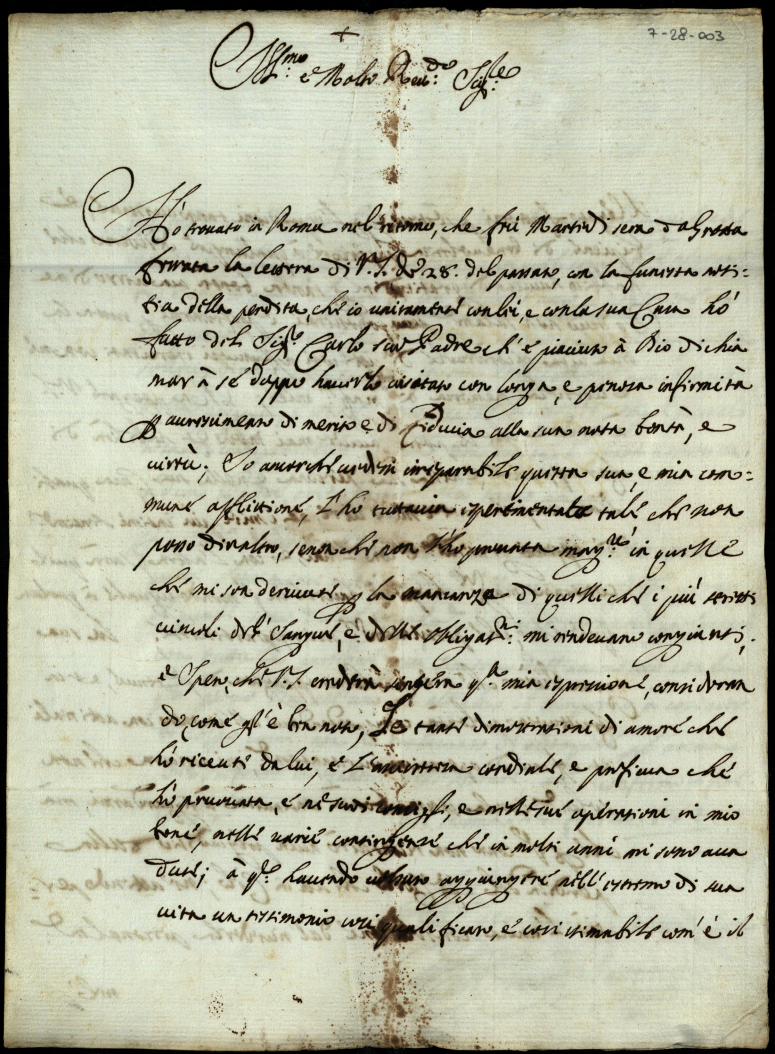 7-28-003
+
Ill.mo e Molto Reu.do Sig.re
Hò trouato in Roma nel ritorno, che feci Martedi sera da Grotta
ferrata la lettera di V.S. de 28. del passato, con la funesta noti-
tia della perdita, che io unitamente con lei, e con la sua Casa hò
fatto del Sig.r Carlo suo Padre ch'è piaciuto à Dio di chia
mar à sé doppo hauerlo uisitato con longa, e penosa infirmità
p accrescimento di merito e di fiducia alla sua nota bontà, e
uirtù; Io ancorché uedessi irreparabile questa sua, e mia com-
mune afflittione, l'ho tuttauia esperimentata tale, che non
posso dir altro, senon che non l'ho prouata magg.re in quelle
che mi son deriuate p la mancanza di quelli che i più stretti
uincoli del Sangue, e delle obligat.ni mi rendeuano congiunti;
e Spero, che V.S. crederà sincera q.ta mia espressione, consideran
do, come gl'è ben noto, Le tante dimostrationi di amore che
hò riceute da lui, e L'assistenza cordiale, e proficua che
hò prouata, e ne suoi consigli, e nelle sue operationi in mio
bene, nelle varie contingenze che in molti anni mi sono acca
dute; à q.te hauendo uoluto aggiungere nell'estremo di sua
uita un testimonio cosi qualificato, e cosi stimabile com'è il